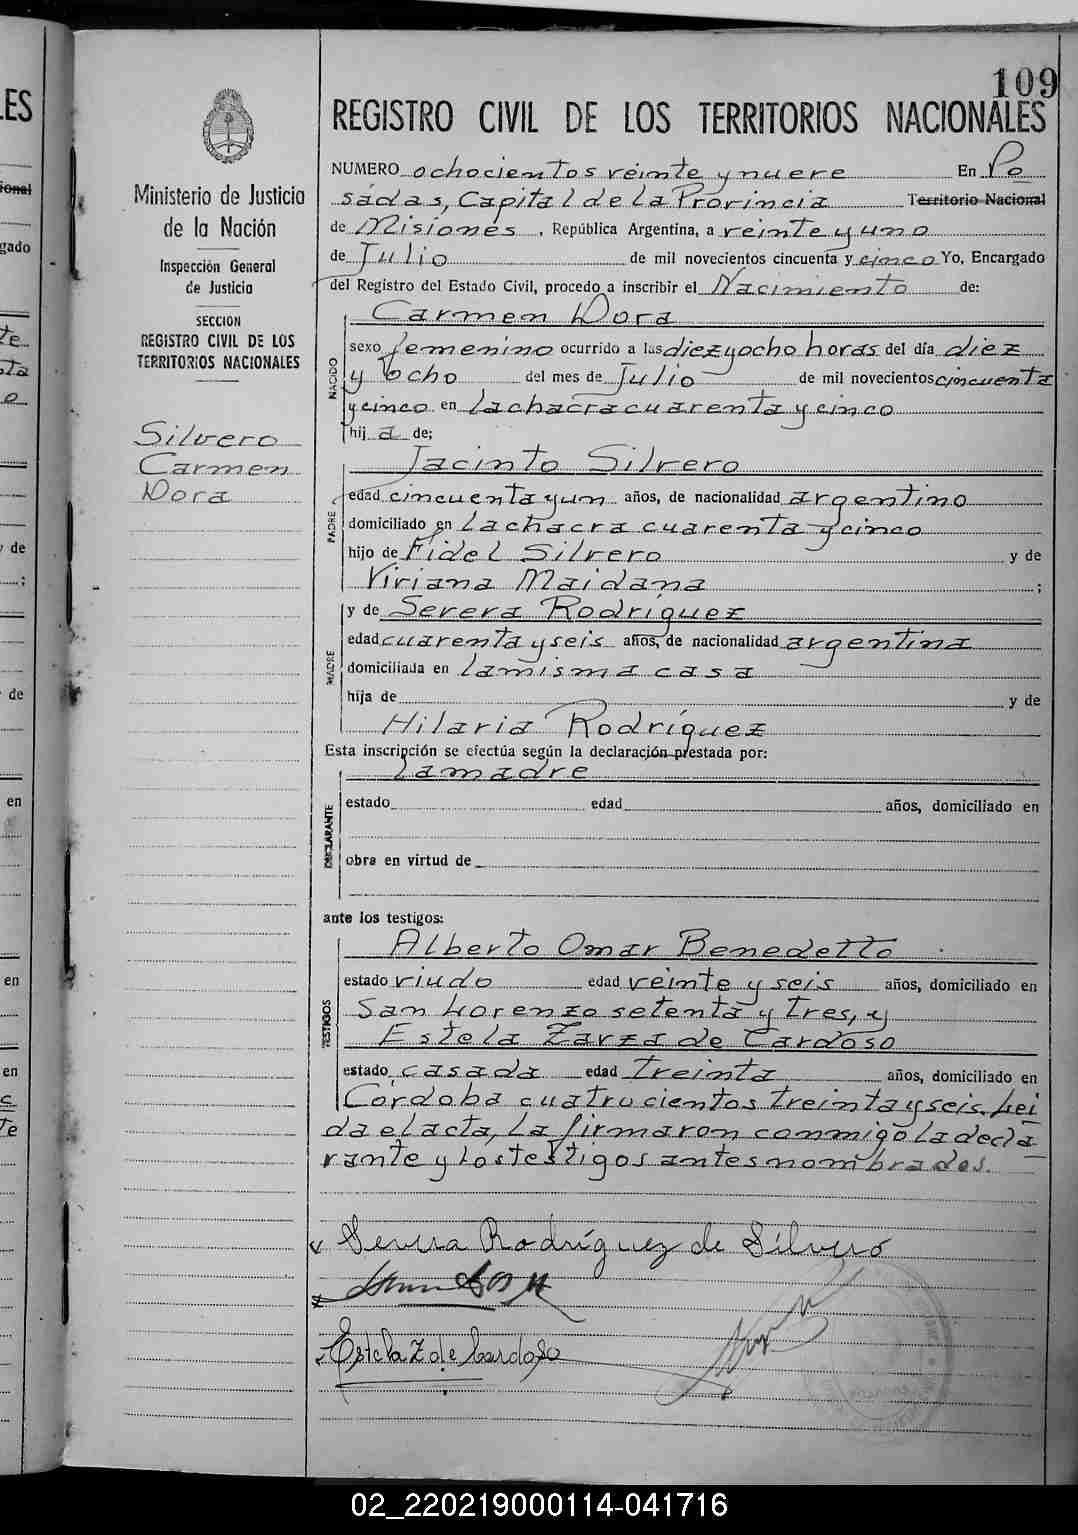 109
REGISTRO CIVIL DE LOS TERRITORIOS NACIONALES
Ministerio de Justicia
de la Nación
Inspección General
de Justicia
SECCION
REGISTRO CIVIL DE LOS
TERRITORIOS NACIONALES
Silvero
Carmen
Dora
NUMERO ochocientos veinte y nueve En Po
sadas, Capital de la Provincia Territorio Nacional
de Misiones, República Argentina, a veinte y uno
de Julio de mil novecientos cincuenta y cinco Yo, Encargado
del Registro del Estado Civil, procedo a inscribir el Nacimiento de:
NACIDO
Carmen Dora
sexo femenino ocurrido a las diez y ocho horas del día diez
y ocho del mes de Julio de mil novecientos cincuenta
y cinco en la chacra cuarenta y cinco
hij a de;
PADRE
Jacinto Silvero
edad cincuenta y un años, de nacionalidad argentino
domiciliado en la chacra cuarenta y cinco
hijo de Fidel Silvero y de
Viviana Maidana ;
MADRE
y de Severa Rodríguez
edad cuarenta y seis años, de nacionalidad argentina
domiciliada en la misma casa
hija de y de
Hilaria Rodríguez
Esta inscripción se efectúa según la declaración prestada por:
DECLARANTE
la madre
estado edad años, domiciliado en
obra en virtud de
ante los testigos:
TESTIGOS
Alberto Omar Benedetto
estado viudo edad veinte y seis años, domiciliado en
San Lorenzo setenta y tres, y
Estela Zarza de Cardoso
estado casada edad treinta años, domiciliado en
Córdoba cuatrocientos treinta y seis. Lei
da el acta, la firmaron conmigo la decla
rante y los testigos antes nombrados.
Severa Rodríguez de Silveró
Estela Z de Cardoso
02_220219000114-041716